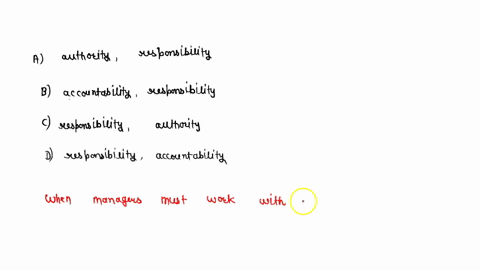 A) authority, responsibility
B) accountability, responsibility
C) responsibility, authority
D) responsibility, accountability
When managers must work with